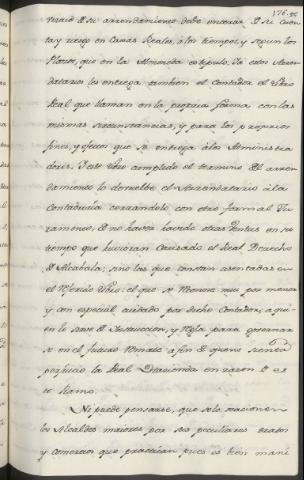 176.
ta y riesgo en Caxas Reales, á los tiempos, y segun los
Plazos, que en la Almoneda estipuló. Ya estos Arren-
datarios les entrega tambien el Contador el Libro
Real que llaman en la propria forma con las
mismas circunstancias, y para los proprios
fines, y efectos que se entrega á los Administra-
dores. Y este Libro cumplido el termino de el arren-
damiento lo devuelbe el Arrendatario á la
Contaduria cerrandolo, con otro formal Ju-
ramento, de no haver havido otras Ventas en su
tiempo que huvieran Causado el Real Derecho
de Alcabala; sino las que constan asentadas en
el referido Libro: el que se Menora mui por menor
y con especial cuidado por dicho Contador, a qui-
en le sirve de Instruccion, y Regla para governar
se en el futuro Remate á fin de que no sienta
perjuicio la Real Hacienda en razon de es
te Ramo.
Ni puede pensarse, que solo ocacionen
los Alcaldes maiores por sus peculiares tratos
y comercios que practican pues es bien mani